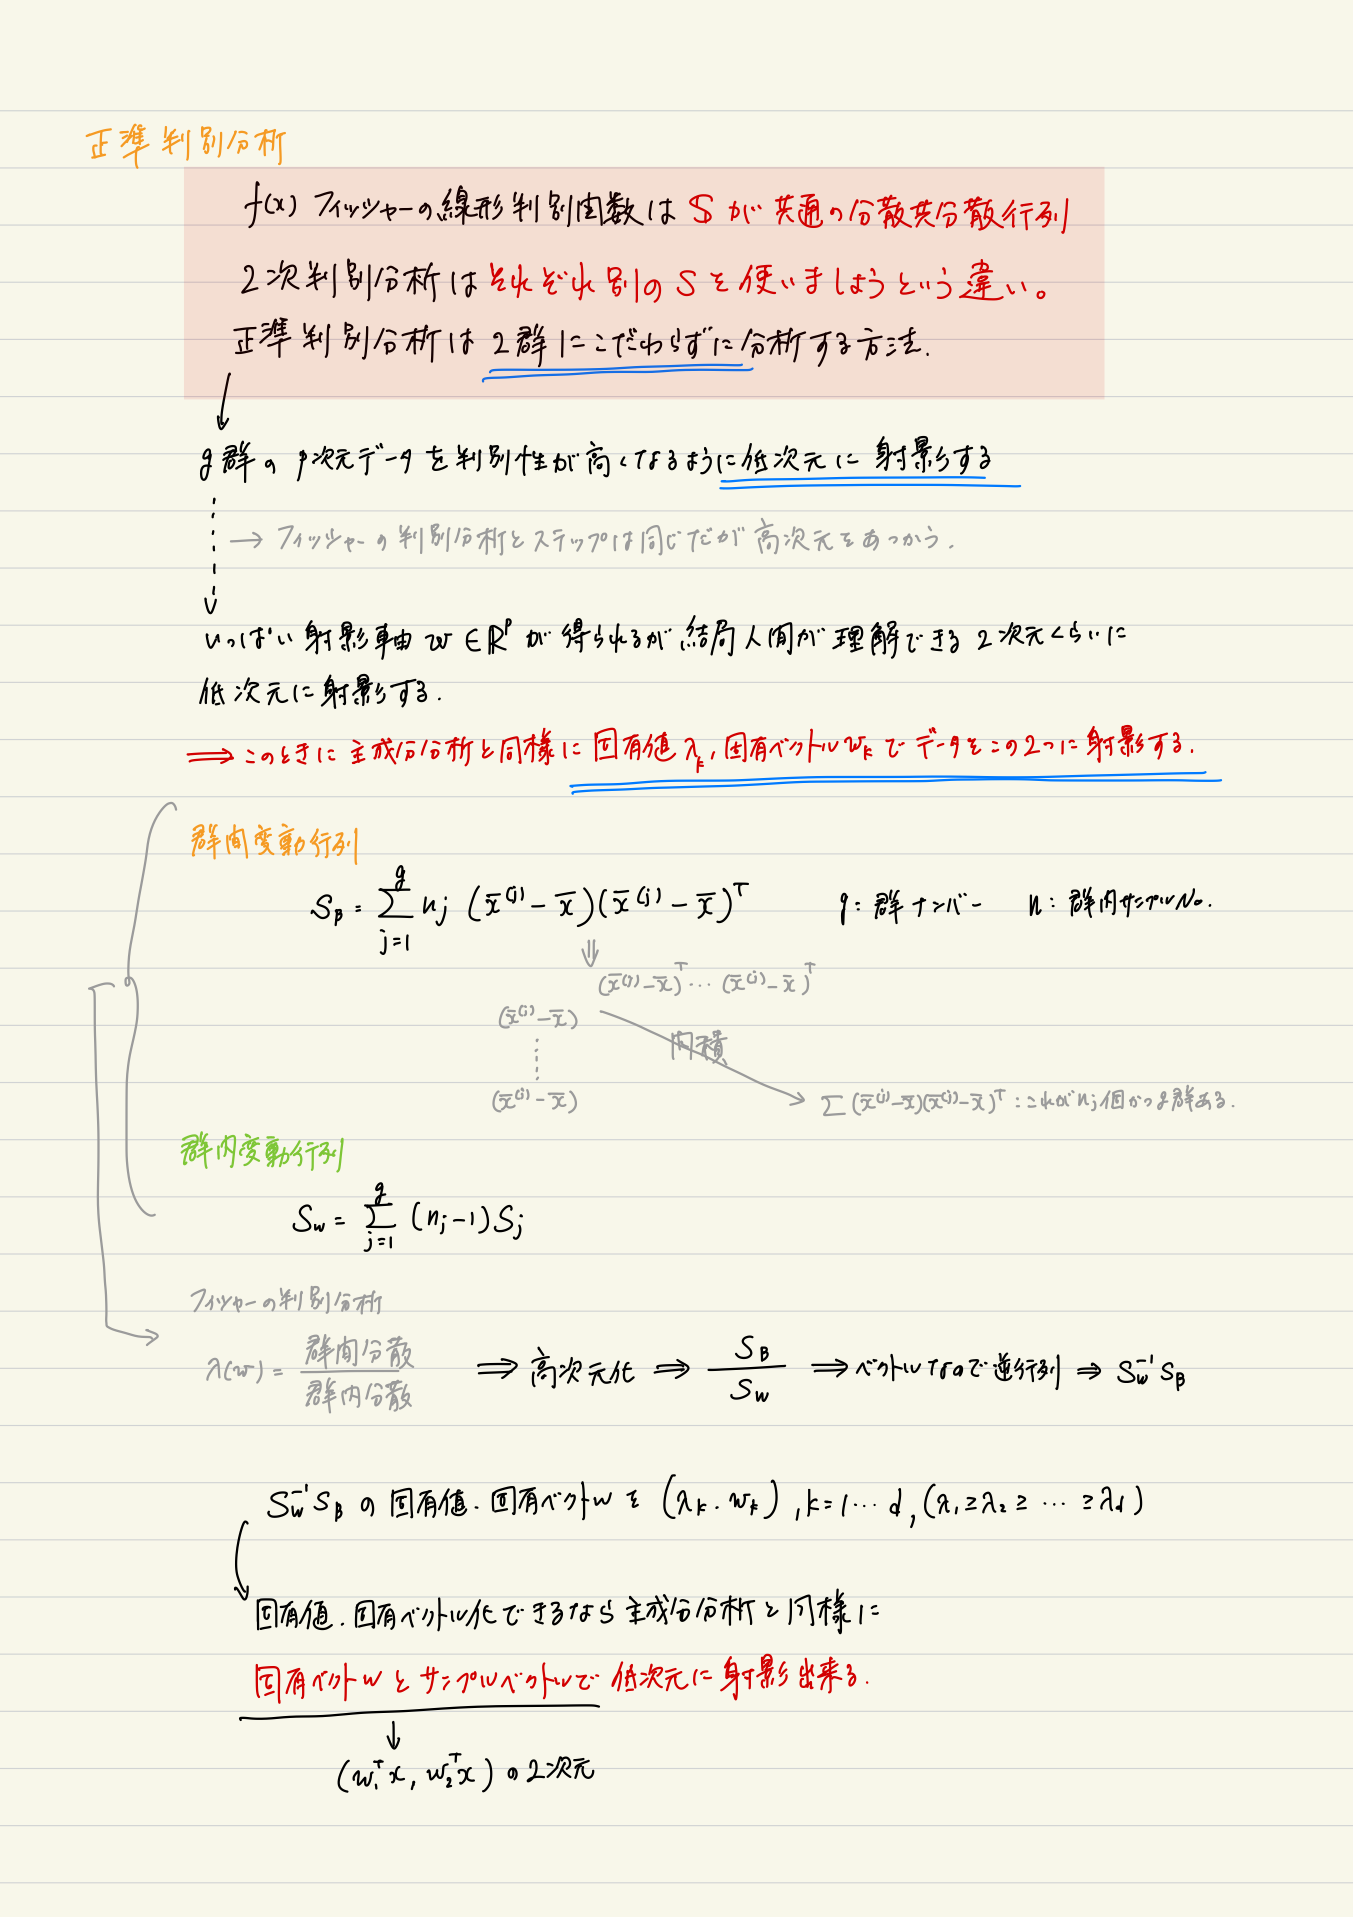 正準判別分析
f(x) フィッシャーの線形判別関数は S が 共通の分散共分散行列
2次判別分析は それぞれ別の S を使いましょうという違い。
正準判別分析は 2群にこだわらずに分析する方法.
g群の p次元データを判別性が高くなるように低次元に射影する
→ フィッシャーの判別分析とステップは同じだが高次元をあつかう.
いっぱい射影軸 w ∈ R^p が得られるが結局人間が理解できる2次元くらいに
低次元に射影する.
⇒ このときに主成分分析と同様に固有値 λ_k, 固有ベクトル w_k でデータをこの2つに射影する.
群間変動行列
S_B = Σ_{j=1}^{g} n_j (x̄^(j) − x̄)(x̄^(j) − x̄)^T g: 群ナンバー n: 群内サンプルNo.
⇓
(x̄^(j) − x̄)^T ··· (x̄^(j) − x̄)^T
(x̄^(j) − x̄)
内積
(x̄^(j) − x̄)
Σ (x̄^(j) − x̄)(x̄^(j) − x̄)^T : これが n_j 個かつ g群ある.
群内変動行列
S_w = Σ_{j=1}^{g} (n_j − 1) S_j
フィッシャーの判別分析
λ(w) = 群間分散 / 群内分散 ⇒ 高次元化 ⇒ S_B / S_w ⇒ ベクトルなので逆行列 ⇒ S_w^{-1} S_B
S_w^{-1} S_B の固有値. 固有ベクトルを (λ_k. w_k), k = 1 ··· d, (λ_1 ≥ λ_2 ≥ ··· ≥ λ_d)
固有値. 固有ベクトル化できるなら主成分分析と同様に
固有ベクトルとサンプルベクトルで低次元に射影出来る.
↓
(w_1^T x, w_2^T x) の2次元